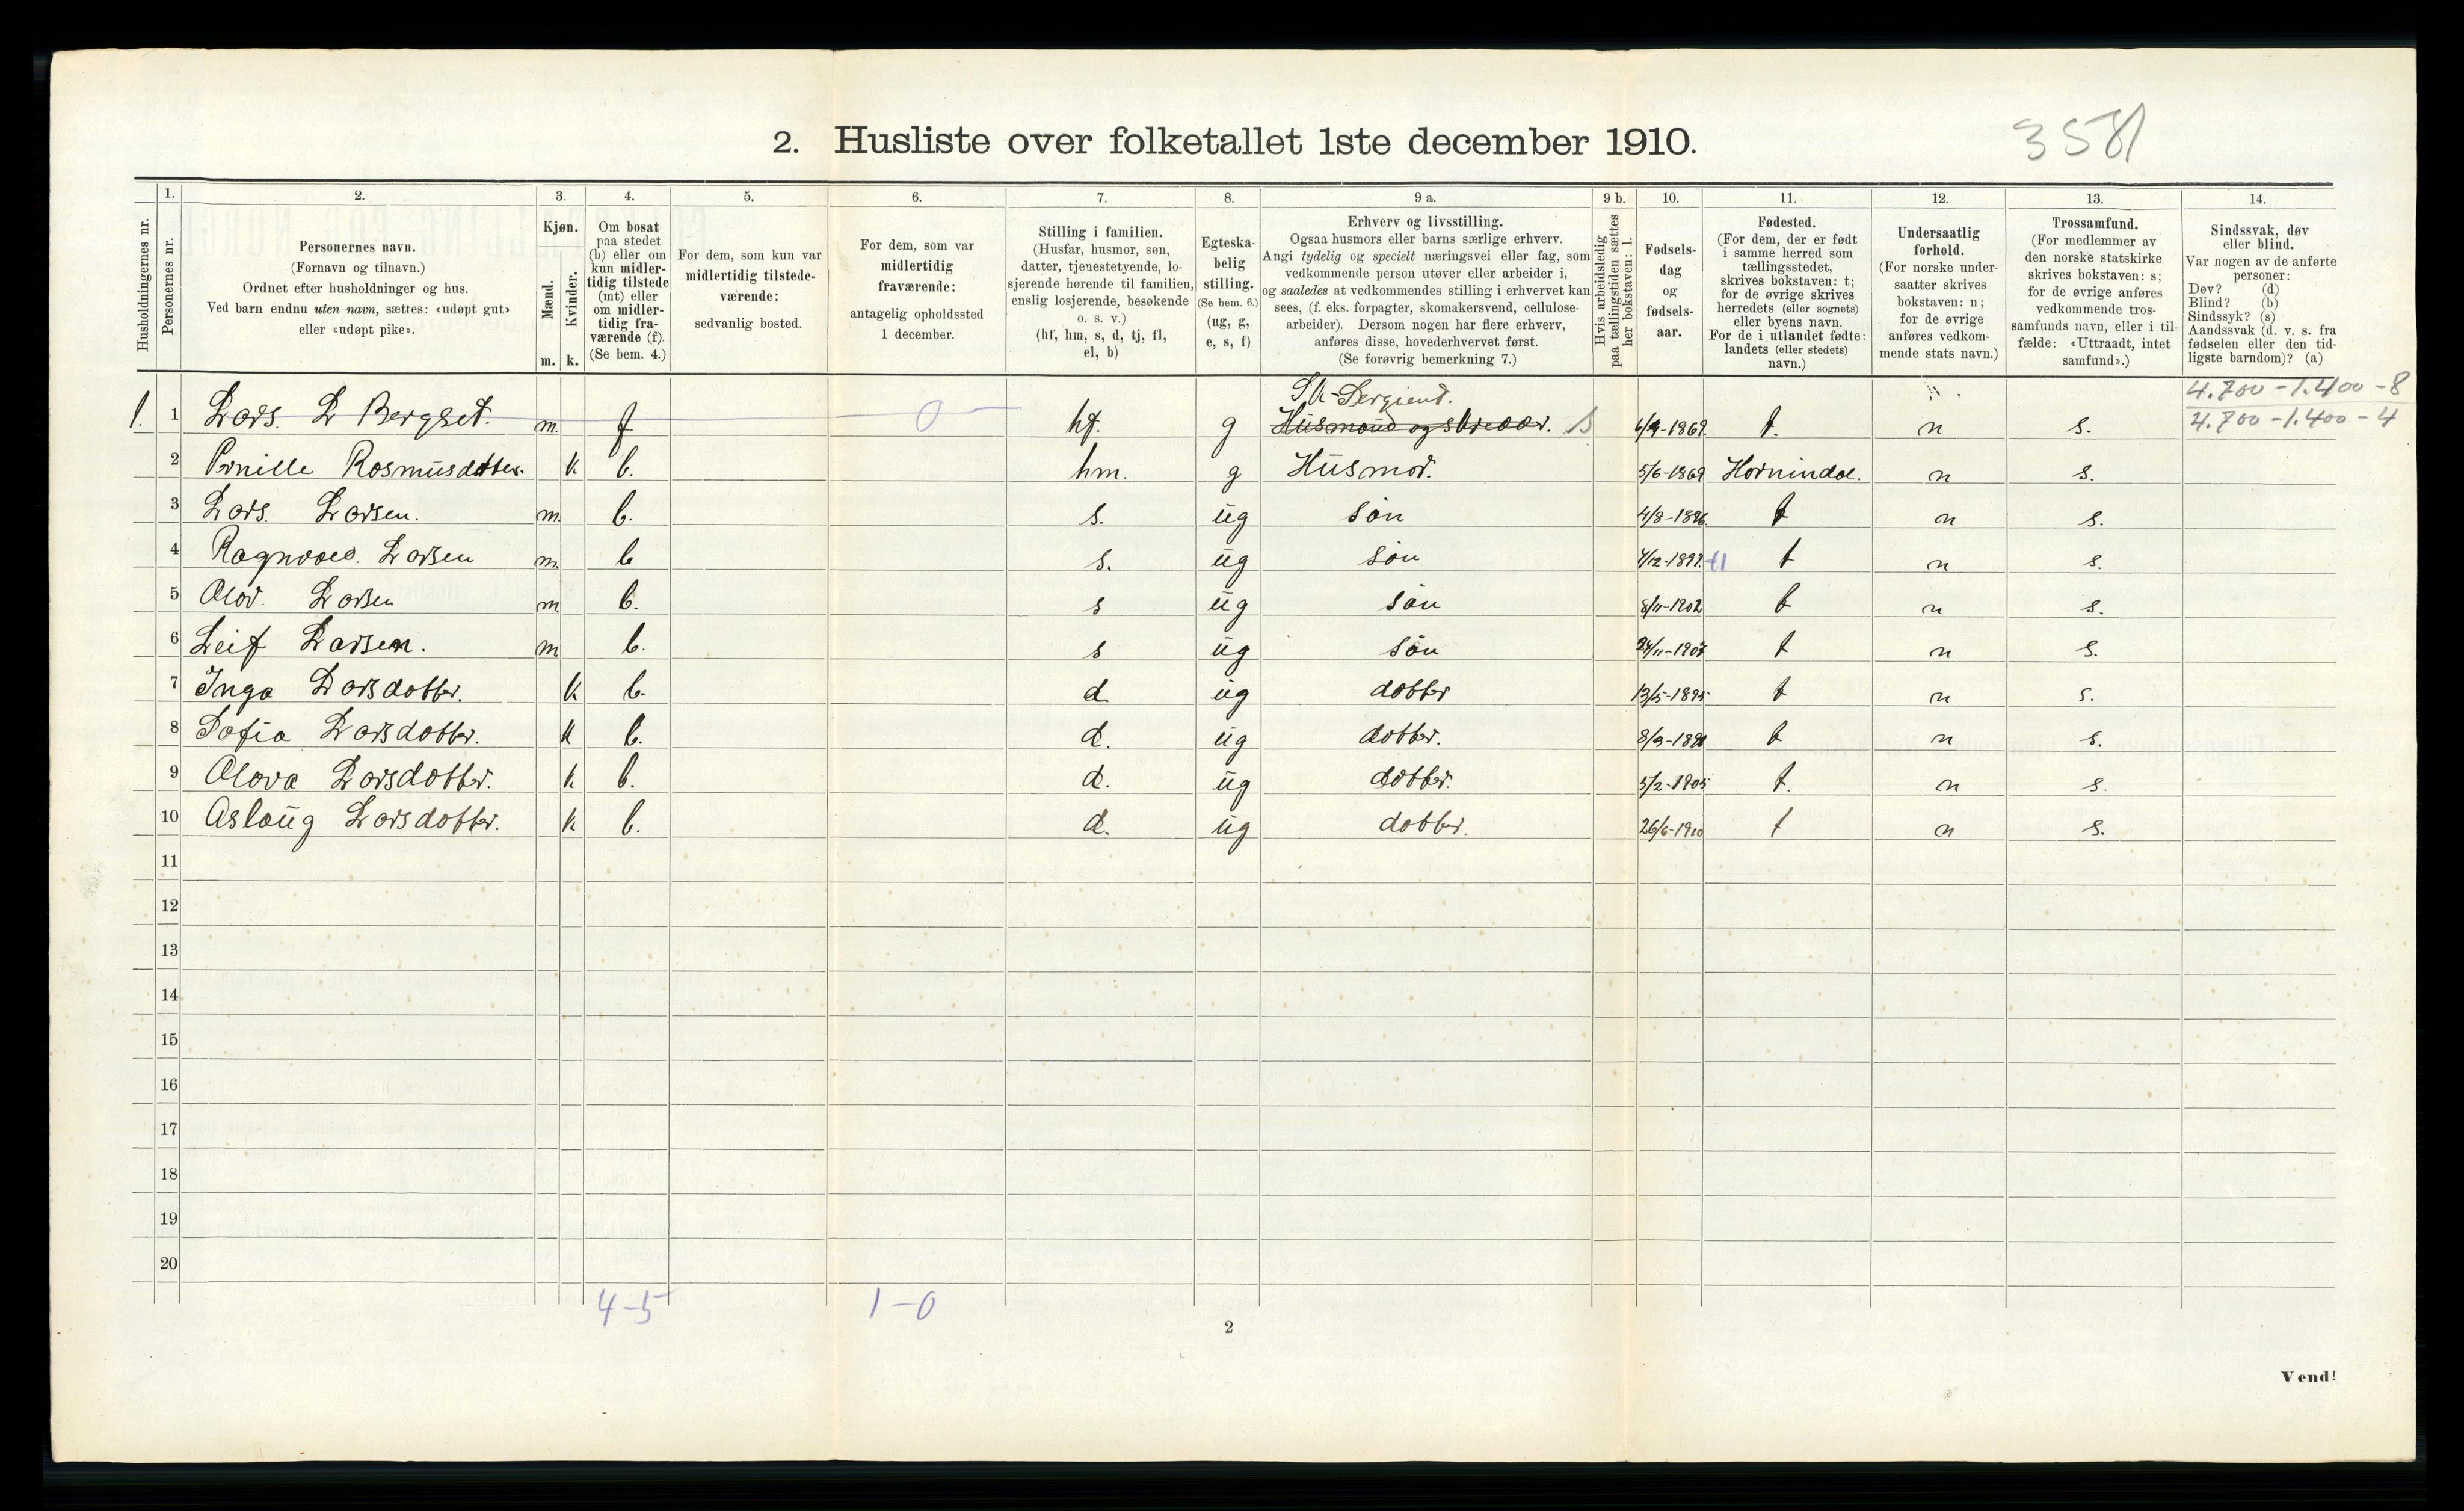 2. Husliste over folketallet 1ste december 1910.
3581
Husholdningernes nr.
1. Personernes nr.
2. Personernes navn. (Fornavn og tilnavn.) Ordnet efter husholdninger og hus. Ved barn endnu uten navn, sættes: «udøpt gut» eller «udøpt pike».
3. Kjøn. Mænd. m. Kvinder. k.
4. Om bosat paa stedet (b) eller om kun midlertidig tilstede (mt) eller om midlertidig fraværende (f). (Se bem. 4.)
5. For dem, som kun var midlertidig tilstedeværende: sedvanlig bosted.
6. For dem, som var midlertidig fraværende: antagelig opholdssted 1 december.
7. Stilling i familien. (Husfar, husmor, søn, datter, tjenestetyende, losjerende hørende til familien, enslig losjerende, besøkende o. s. v.) (hf, hm, s, d, tj, fl, el, b)
8. Egteskabelig stilling. (Se bem. 6.) (ug, g, e, s, f)
9 a. Erhverv og livsstilling. Ogsaa husmors eller barns særlige erhverv. Angi tydelig og specielt næringsvei eller fag, som vedkommende person utøver eller arbeider i, og saaledes at vedkommendes stilling i erhvervet kan sees, (f. eks. forpagter, skomakersvend, cellulosearbeider). Dersom nogen har flere erhverv, anføres disse, hovederhvervet først. (Se forøvrig bemerkning 7.)
9 b. Hvis arbeidsledig paa tællingstiden sættes her bokstaven: l.
10. Fødselsdag og fødselsaar.
11. Fødested. (For dem, der er født i samme herred som tællingsstedet, skrives bokstaven: t; for de øvrige skrives herredets (eller sognets) eller byens navn. For de i utlandet fødte: landets (eller stedets) navn.)
12. Undersaatlig forhold. (For norske undersaatter skrives bokstaven: n; for de øvrige anføres vedkommende stats navn.)
13. Trossamfund. (For medlemmer av den norske statskirke skrives bokstaven: s; for de øvrige anføres vedkommende trossamfunds navn, eller i tilfælde: «Uttraadt, intet samfund».)
14. Sindssvak, døv eller blind. Var nogen av de anførte personer: Døv? (d) Blind? (b) Sindssyk? (s) Aandssvak (d. v. s. fra fødselen eller den tidligste barndom)? (a)
4.700 - 1.400 - 8
4.700 - 1.400 - 4
Sk-Sergient.
1. 1 Lars. L Bergset. m. f 0 hf. g Husmand og skredder. 6/9-1869. t. n s.
2 Pernille Rasmusdotter. k b. hm. g Husmor. 5/6-1869 Hornindal. n s.
3 Lars. Larsen. m. b. s. ug søn 4/8-1896. t n s.
4 Ragnvald. Larsen m. b s. ug søn 4/12-1899. t n s.
5 Olav. Larsen m. b. s ug søn 8/11-1902 t n s.
6 Leif Larsen. m b. s ug søn 24/11-1907 t n s.
7 Inga Larsdotter. k b. d. ug dotter 13/5-1895 t n s.
8 Sofia Larsdotter. k b. d. ug dotter. t n s.
9 Olava Larsdotter. k b. d. ug dotter. 5/2-1905 t. n s.
10 Aslaug Larsdotter. k b. d. ug dotter. 26/6-1910 t n s.
11
12
13
14
15
16
17
18
19
20
4-5 1-0
2
Vend!